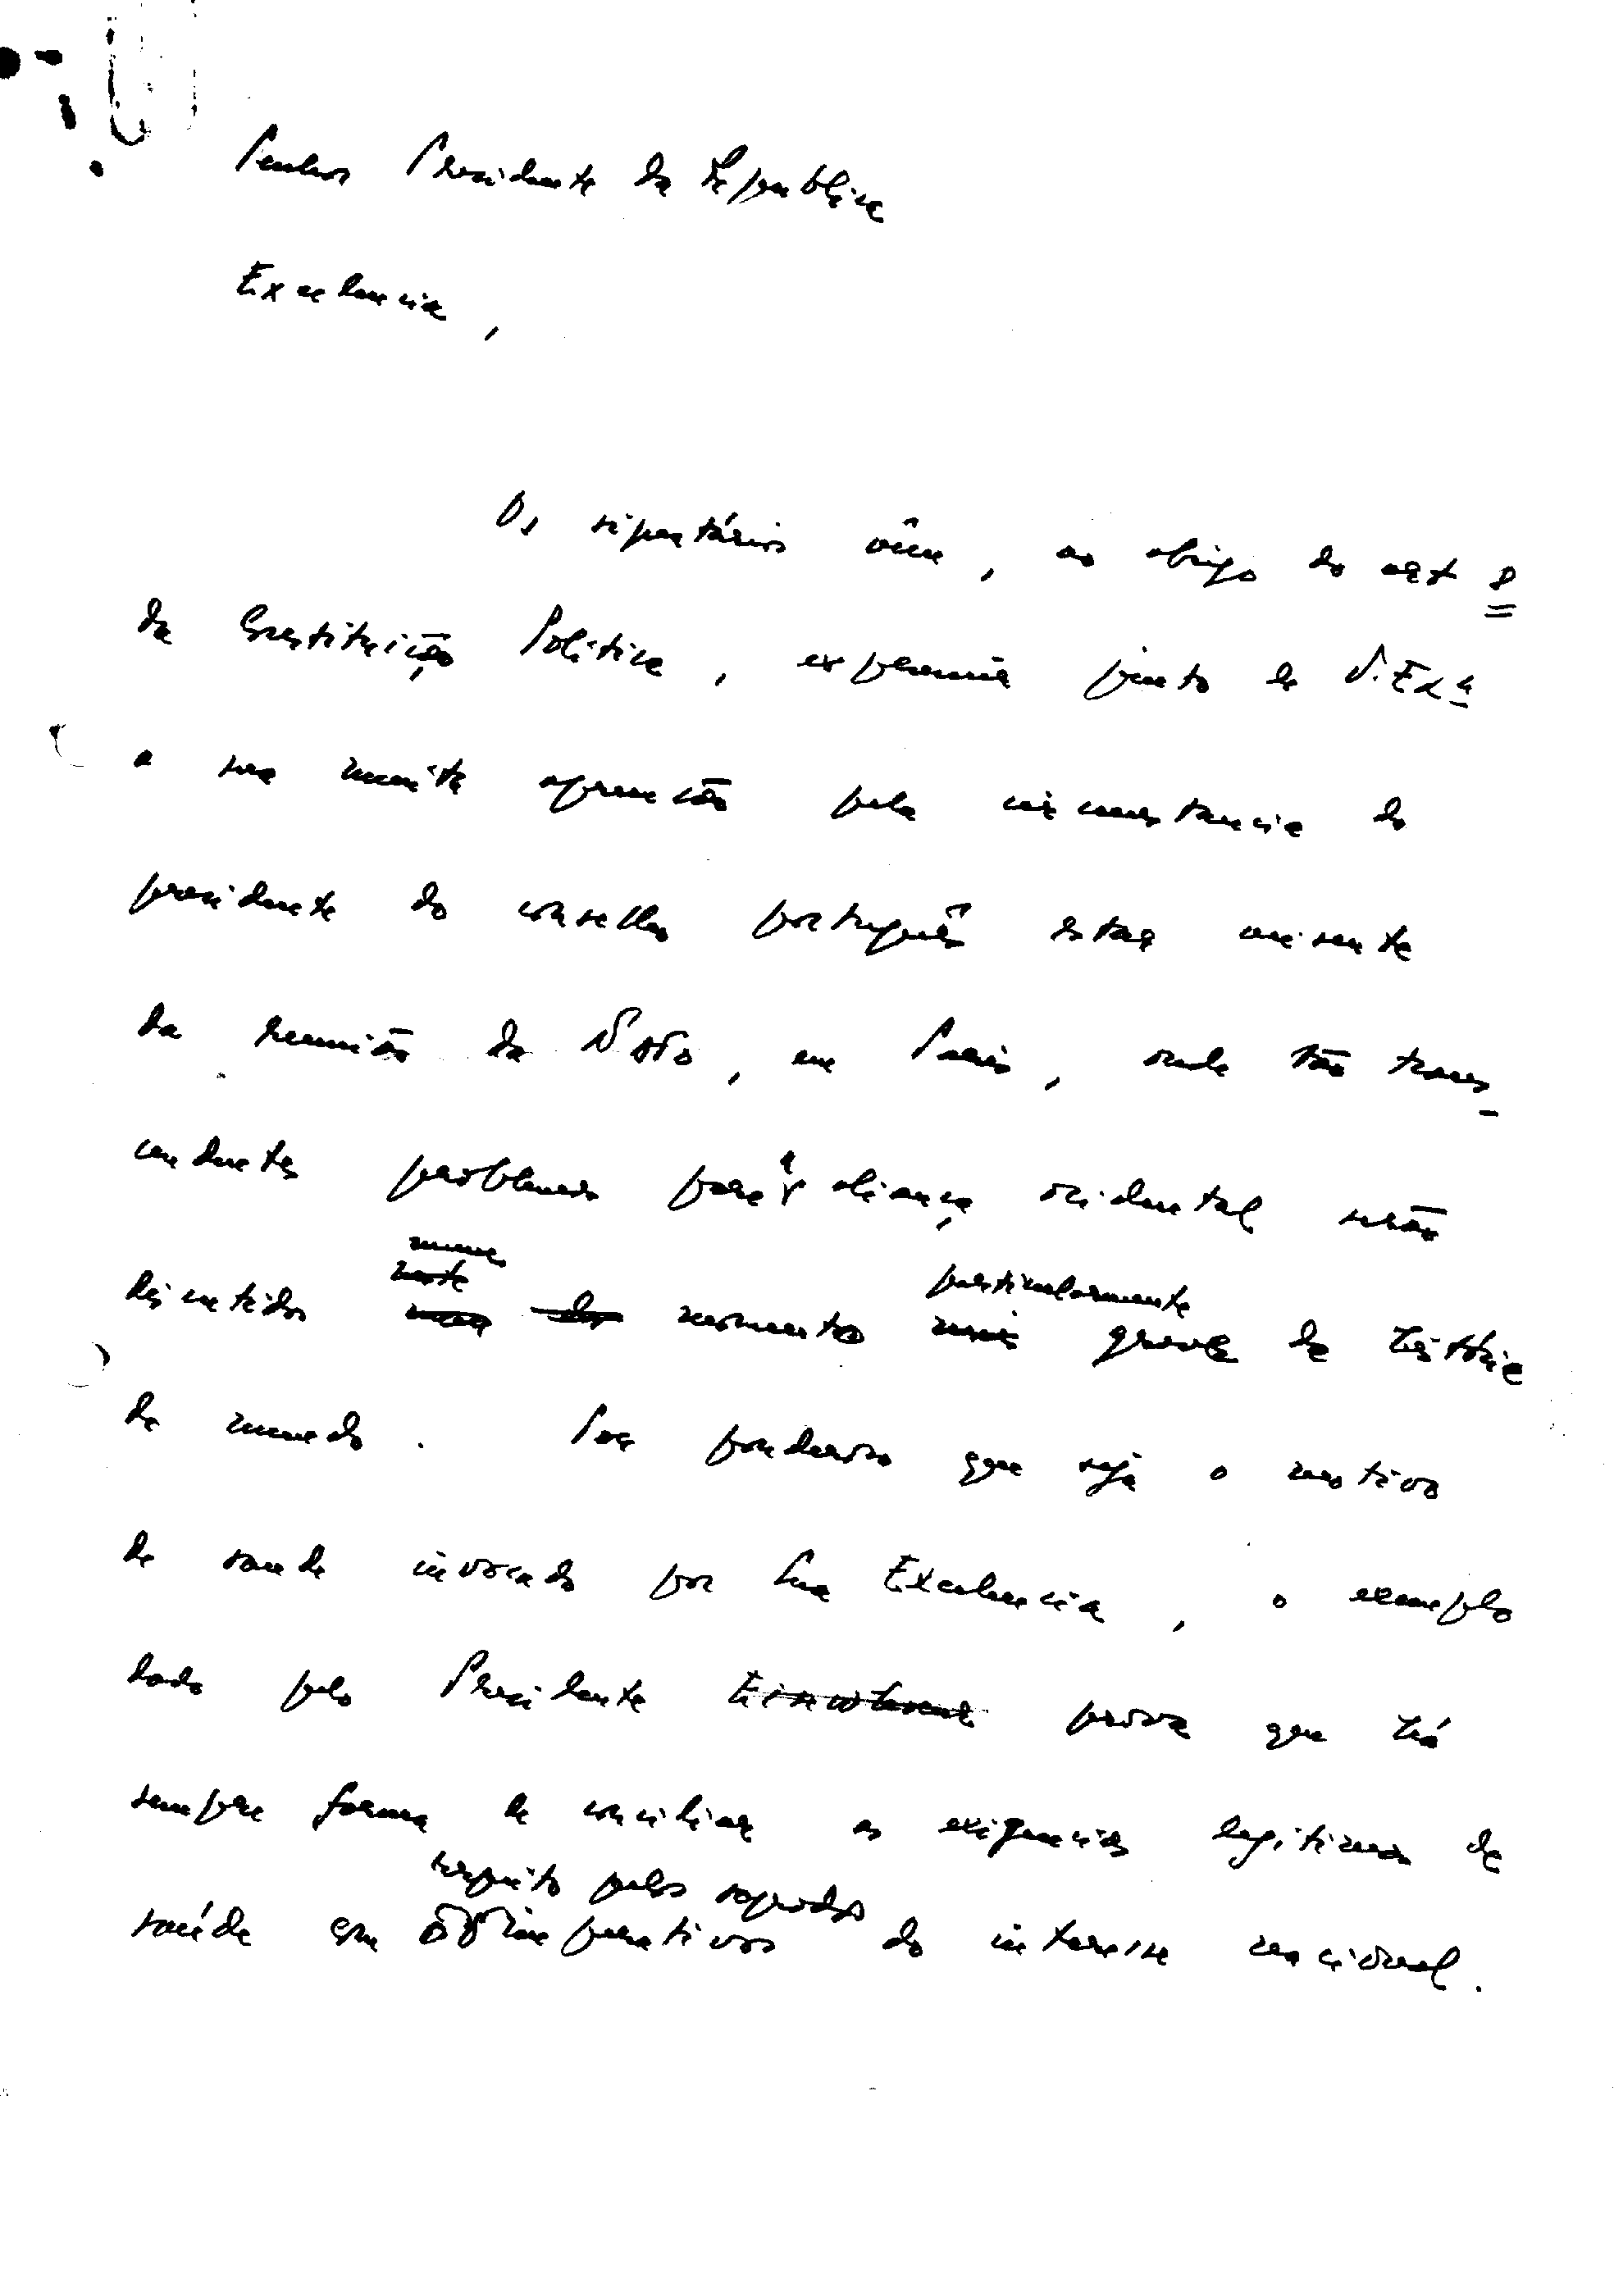 Senhor Presidente da Republica
Excelencia,
Os signatários vêm, ao abrigo do art 8
da Constituição Politica, exprimir junto de V. Exª
a sua muita apreensão pela circunstancia do
presidente do conselho português estar ausente
da reunião da Nato, em Paris, onde tão trans-
cendentes problemas para a aliança ocidental serão
num
neste particularmente
discutidos momento mais grave da história
do mundo. Por ponderoso que seja o motivo
de saude invocado por Sua Excelencia, o exemplo
dado pelo Presidente Eisenhower prova que há
sempre forma de conciliar as exigencias legitimas de
respeito pelos sagrados
saúde com o imperativos do interesse nacional.